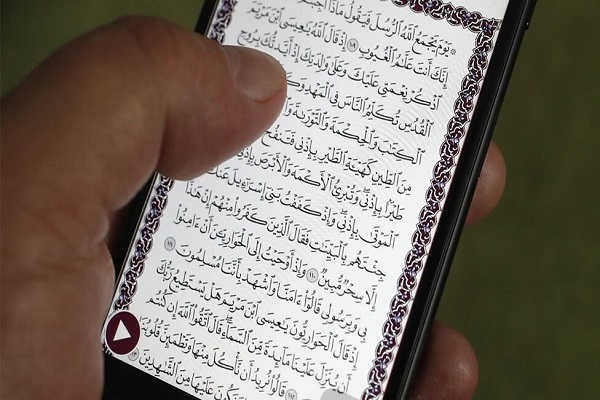 ۞ يَوْمَ يَجْمَعُ ٱللَّهُ ٱلرُّسُلَ فَيَقُولُ مَاذَآ
إِنَّكَ أَنتَ عَلَّٰمُ ٱلْغُيُوبِ ١٠٩ إِذْ قَالَ ٱللَّهُ يَٰعِيسَى ٱبْنَ مَرْيَمَ
ٱذْكُرْ نِعْمَتِى عَلَيْكَ وَعَلَىٰ وَٰلِدَتِكَ إِذْ أَيَّدتُّكَ بِرُوحِ
ٱلْقُدُسِ تُكَلِّمُ ٱلنَّاسَ فِى ٱلْمَهْدِ
ٱلْكِتَٰبَ وَٱلْحِكْمَةَ وَٱلتَّوْرَىٰةَ
مِنَ ٱلطِّينِ كَهَيْـَٔةِ ٱلطَّيْرِ بِإِذْنِى فَتَنفُخُ
طَيْرًۢا بِإِذْنِى وَتُبْرِئُ ٱلْأَكْمَهَ وَٱلْأَبْرَصَ بِإِذْنِى
ٱلْمَوْتَىٰ بِإِذْنِى وَإِذْ كَفَفْتُ بَنِىٓ إِسْرَٰٓءِيلَ عَنكَ
جِئْتَهُم بِٱلْبَيِّنَٰتِ فَقَالَ ٱلَّذِينَ كَفَرُوا۟ مِنْهُمْ إِنْ هَٰذَآ
إِلَّا سِحْرٌ مُّبِينٌ ١١٠ وَإِذْ أَوْحَيْتُ إِلَى ٱلْحَوَارِيِّۦنَ أَنْ ءَامِنُوا۟
بِى وَبِرَسُولِى قَالُوٓا۟ ءَامَنَّا وَٱشْهَدْ بِأَنَّنَا مُسْلِمُونَ ١١١
إِذْ قَالَ ٱلْحَوَارِيُّونَ يَٰعِيسَى ٱبْنَ مَرْيَمَ هَلْ يَسْتَطِيعُ رَبُّكَ
أَن يُنَزِّلَ عَلَيْنَا مَآئِدَةً مِّنَ ٱلسَّمَآءِ قَالَ ٱتَّقُوا۟ ٱللَّهَ إِن كُنتُم
١١٢ قَالُوا۟ نُرِيدُ أَن نَّأْكُلَ مِنْهَا وَتَطْمَئِنَّ قُلُوبُنَا
عَلَيْهَا مِنَ ٱلشَّٰهِدِينَ ١١٣